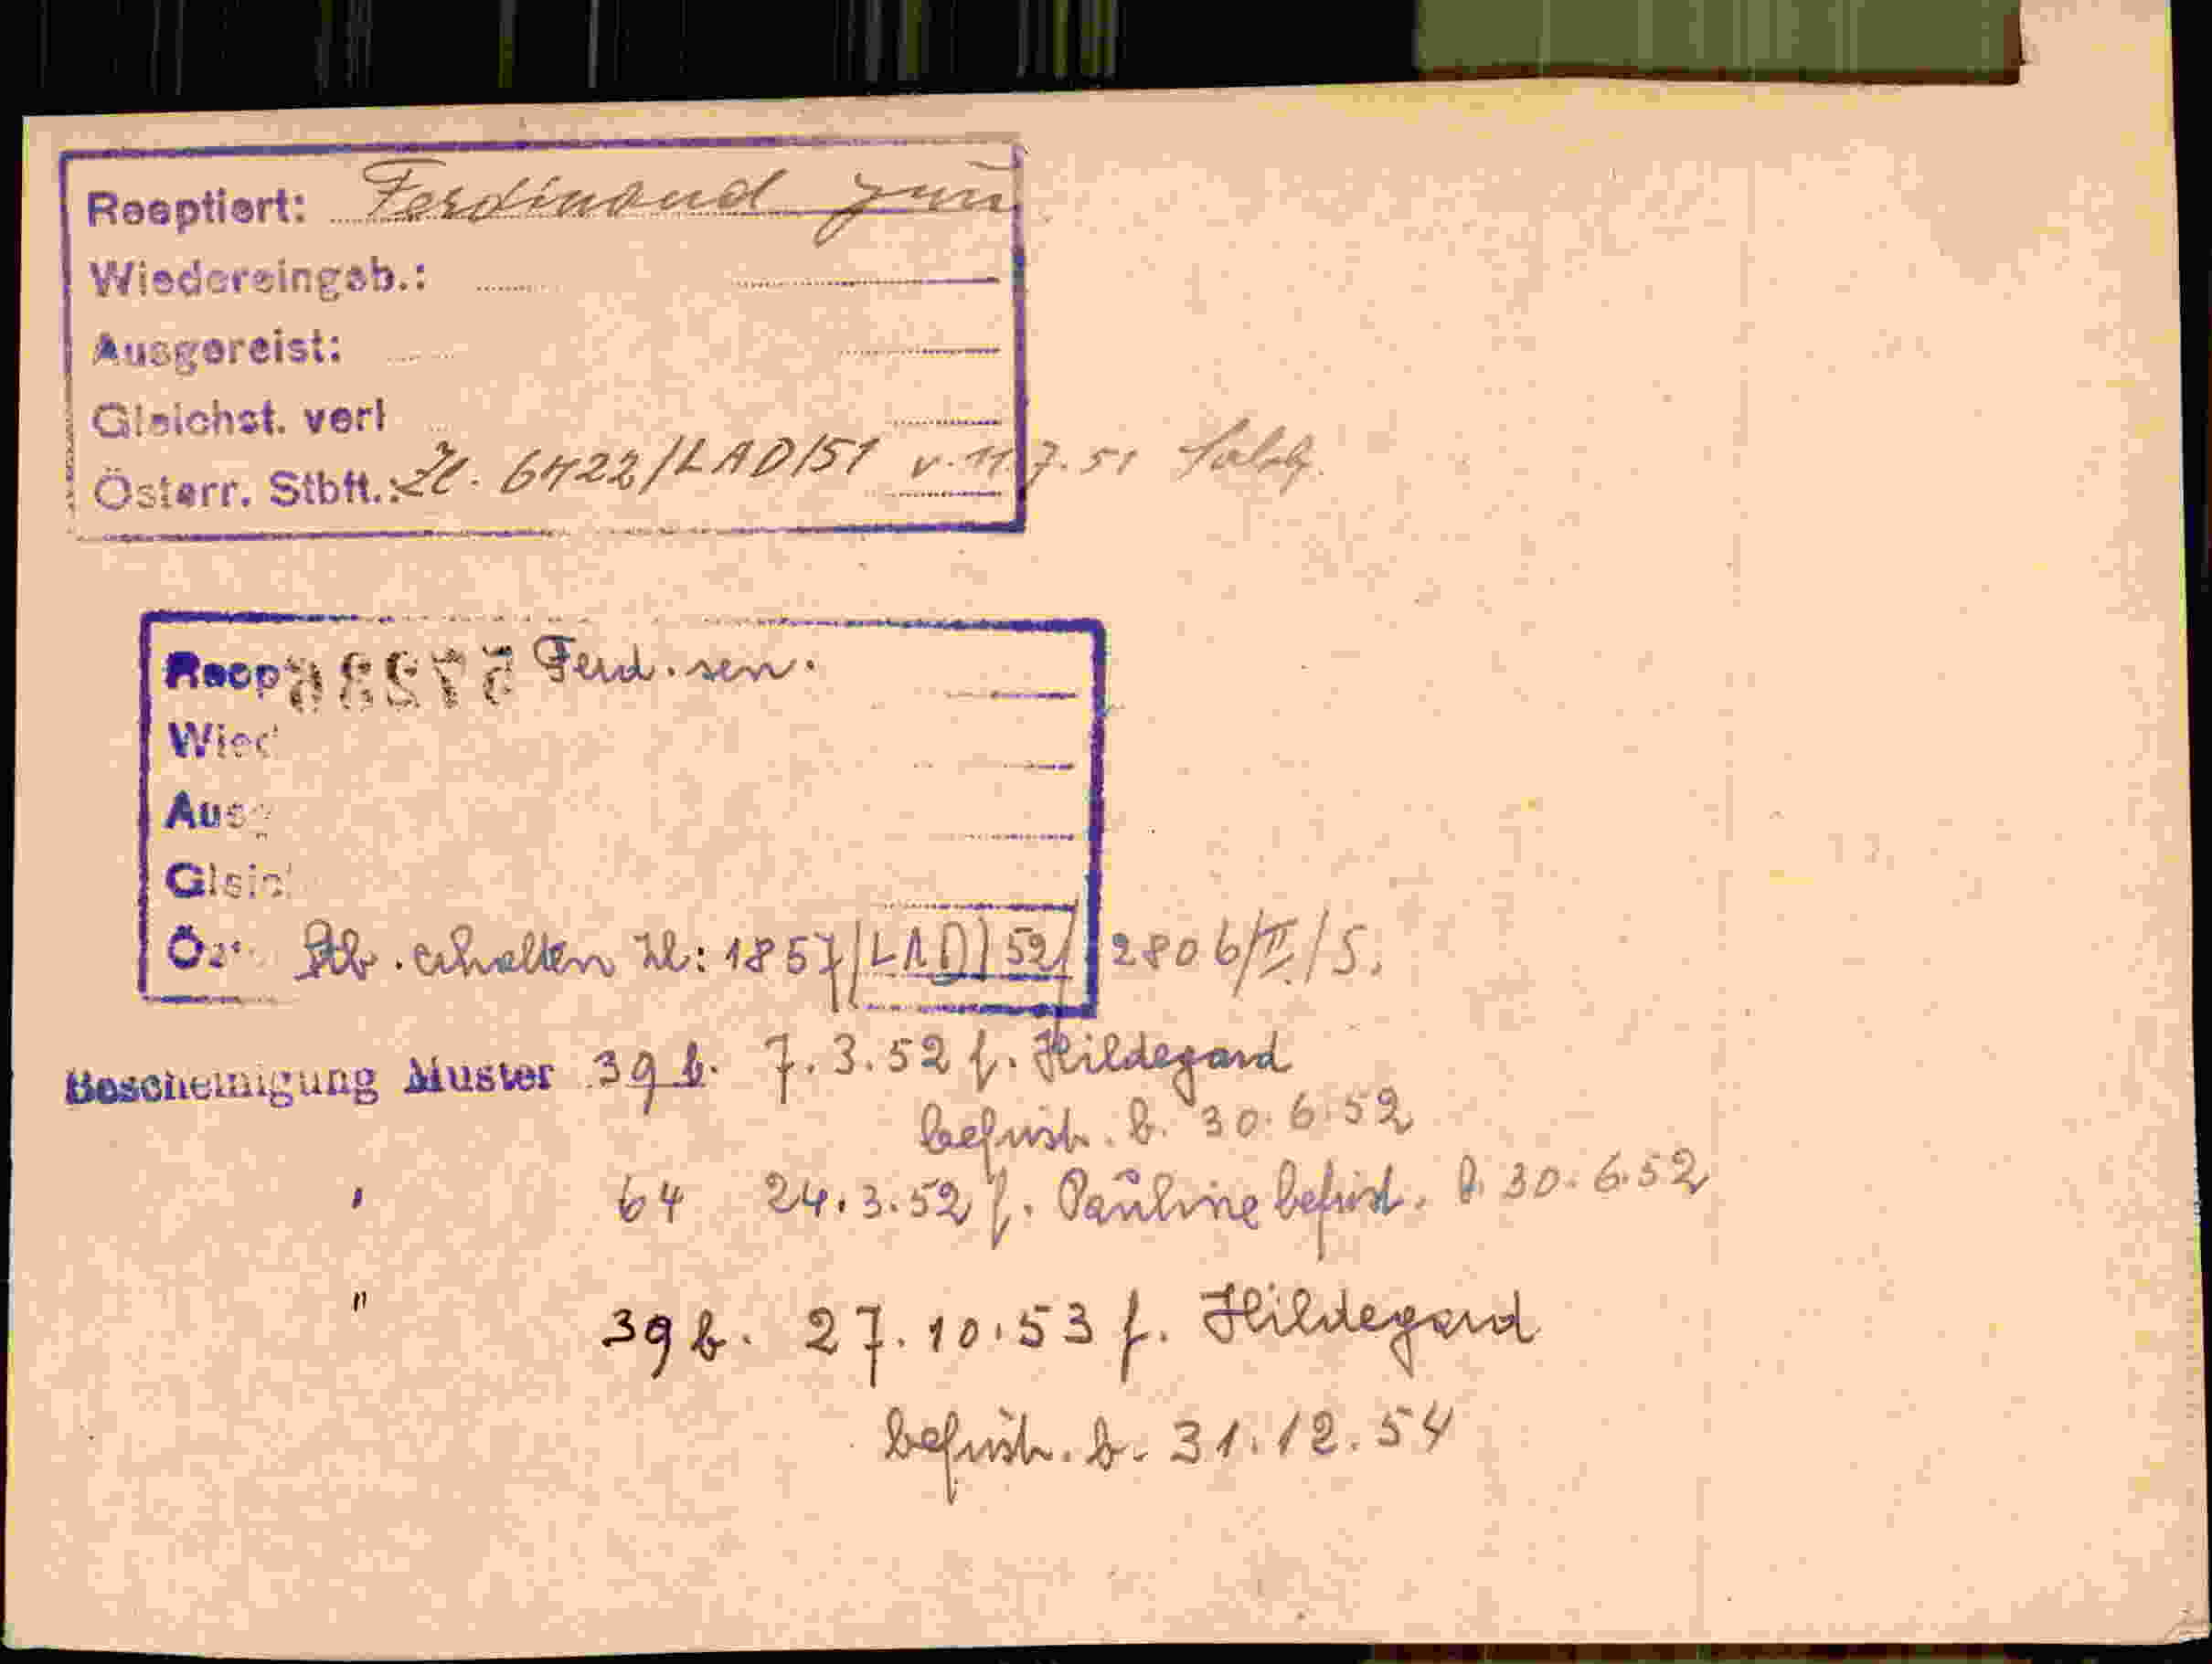 Reeptiert: Ferdinand jun
Wiedereingeb.:
Ausgereist:
Gleichst. verl
Österr. Stbft.: Zl. 6422/LAD/51 v. 11.7.51 Salzb.
Reep Ferd. sen.
Wied
Ausg
Gleic
Ö Stb. erhalten Zl: 1857/LAD/52/ 2806/II/S.
Bescheinigung Muster 39 b. 7.3.52 f. Hildegard
befrist. b. 30.6.52
" 64 24.3.52 f. Pauline befrist. b. 30.6.52
" 39 b. 27.10.53 f. Hildegard
befrist. b. 31.12.54